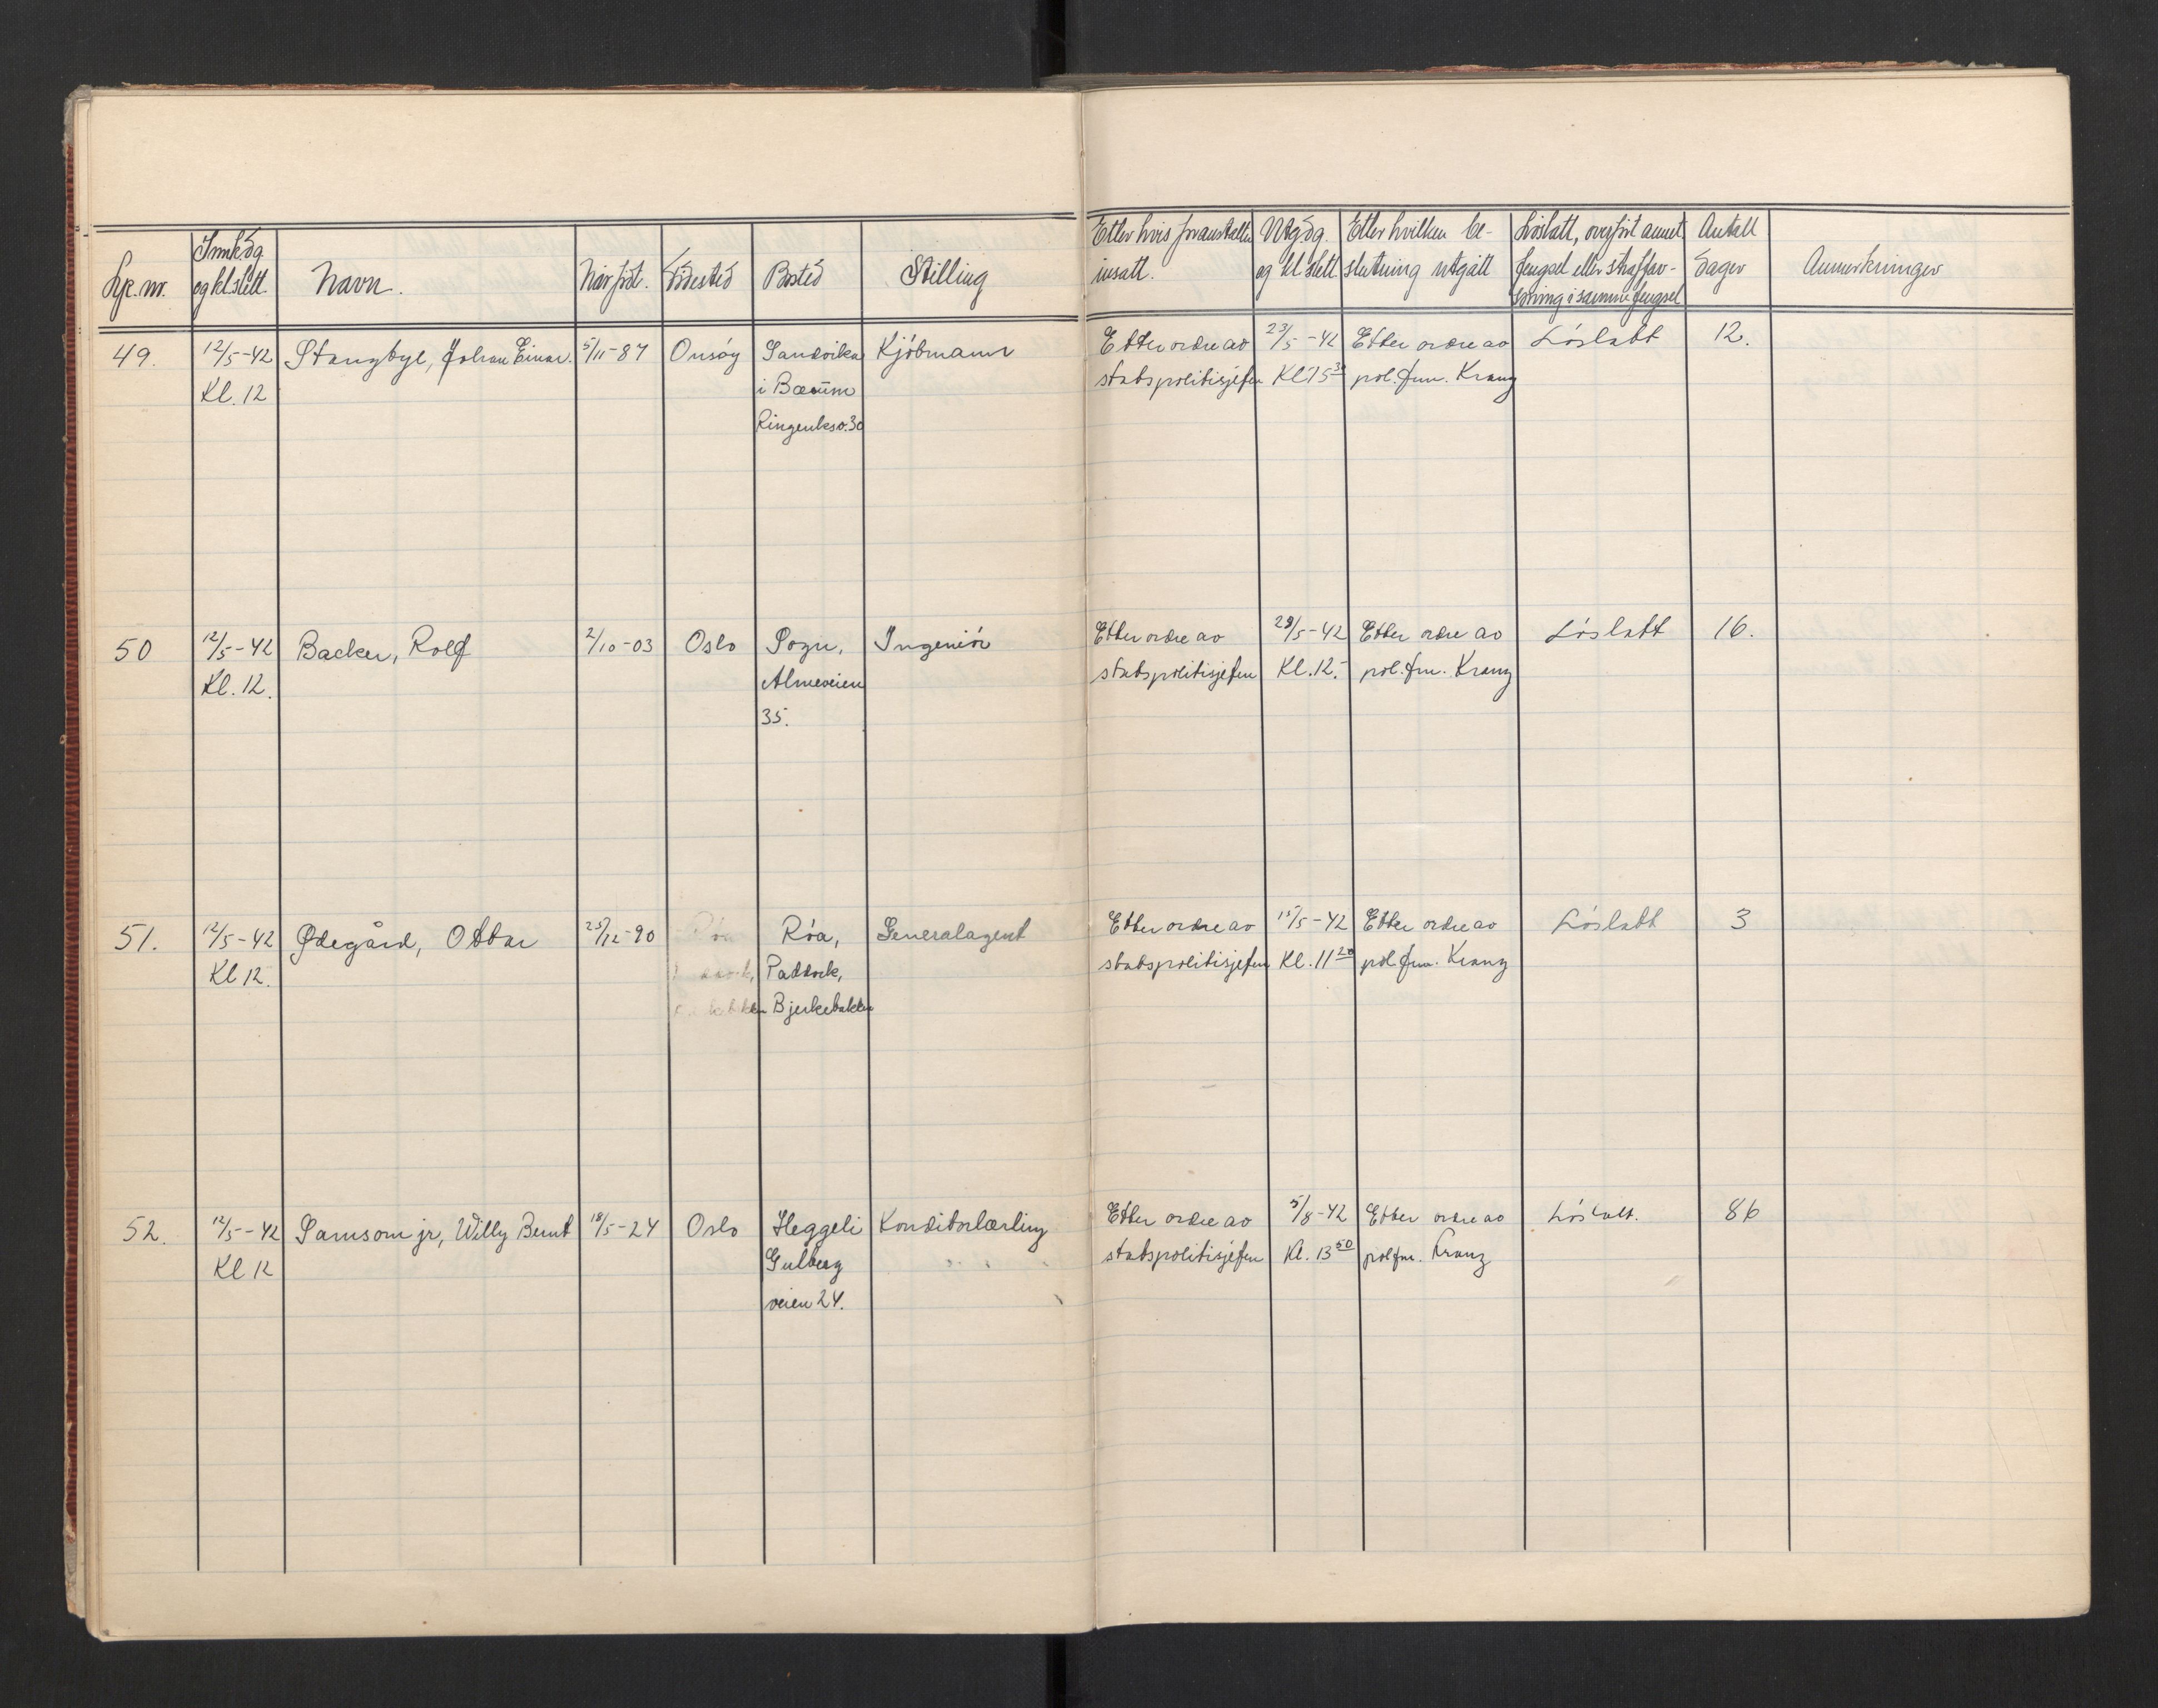 Lp. nr.
Innk. dg. og kl.slett.
Navn.
Når født.
Fødested
Bosted
Stilling
Etter hvis foranstaltn. innsatt.
Utg.dg. og kl slett
Etter hvilken be-
slutning utgått
Løslatt, overført annet
fengsel eller straffav-
soning i samme fengsel
Antall
dager
Anmerkninger
49. 12/5-42 Stangbye, Johan Einar. 5/11-87 Onsøy Sandvika Kjøbmann Etter ordre av 23/5-42 Etter ordre av Løslatt 12.
Kl. 12 i Bærum statspolitisjefen Kl 15 30 pol.fm. Kranz
Ringeriksv. 30
50 12/5-42 Backer, Rolf 2/10-03 Oslo Sogn, Ingeniør Etter ordre av 28/5-42 Etter ordre av Løslatt 16.
Kl. 12. Almeveien statspolitisjefen Kl. 12.- pol.fm. Kranz
35.
51. 12/5-42 Ødegård, Ottar 25/12-90 Røa, Generalagent Etter ordre av 15/5-42 Etter ordre av Løslatt 3
Kl 12. Paddock, statspolitisjefen Kl. 11 20 pol.fm. Kranz
Bjerkebakken
52. 12/5-42 Samson jr, Willy Bernt 18/5-24 Oslo Heggeli Konditorlærling Etter ordre av 5/8-42 Etter ordre av Løslatt. 86
Kl 12 Gulberg statspolitisjefen Kl. 13 50 pol.fm. Kranz
veien 24.